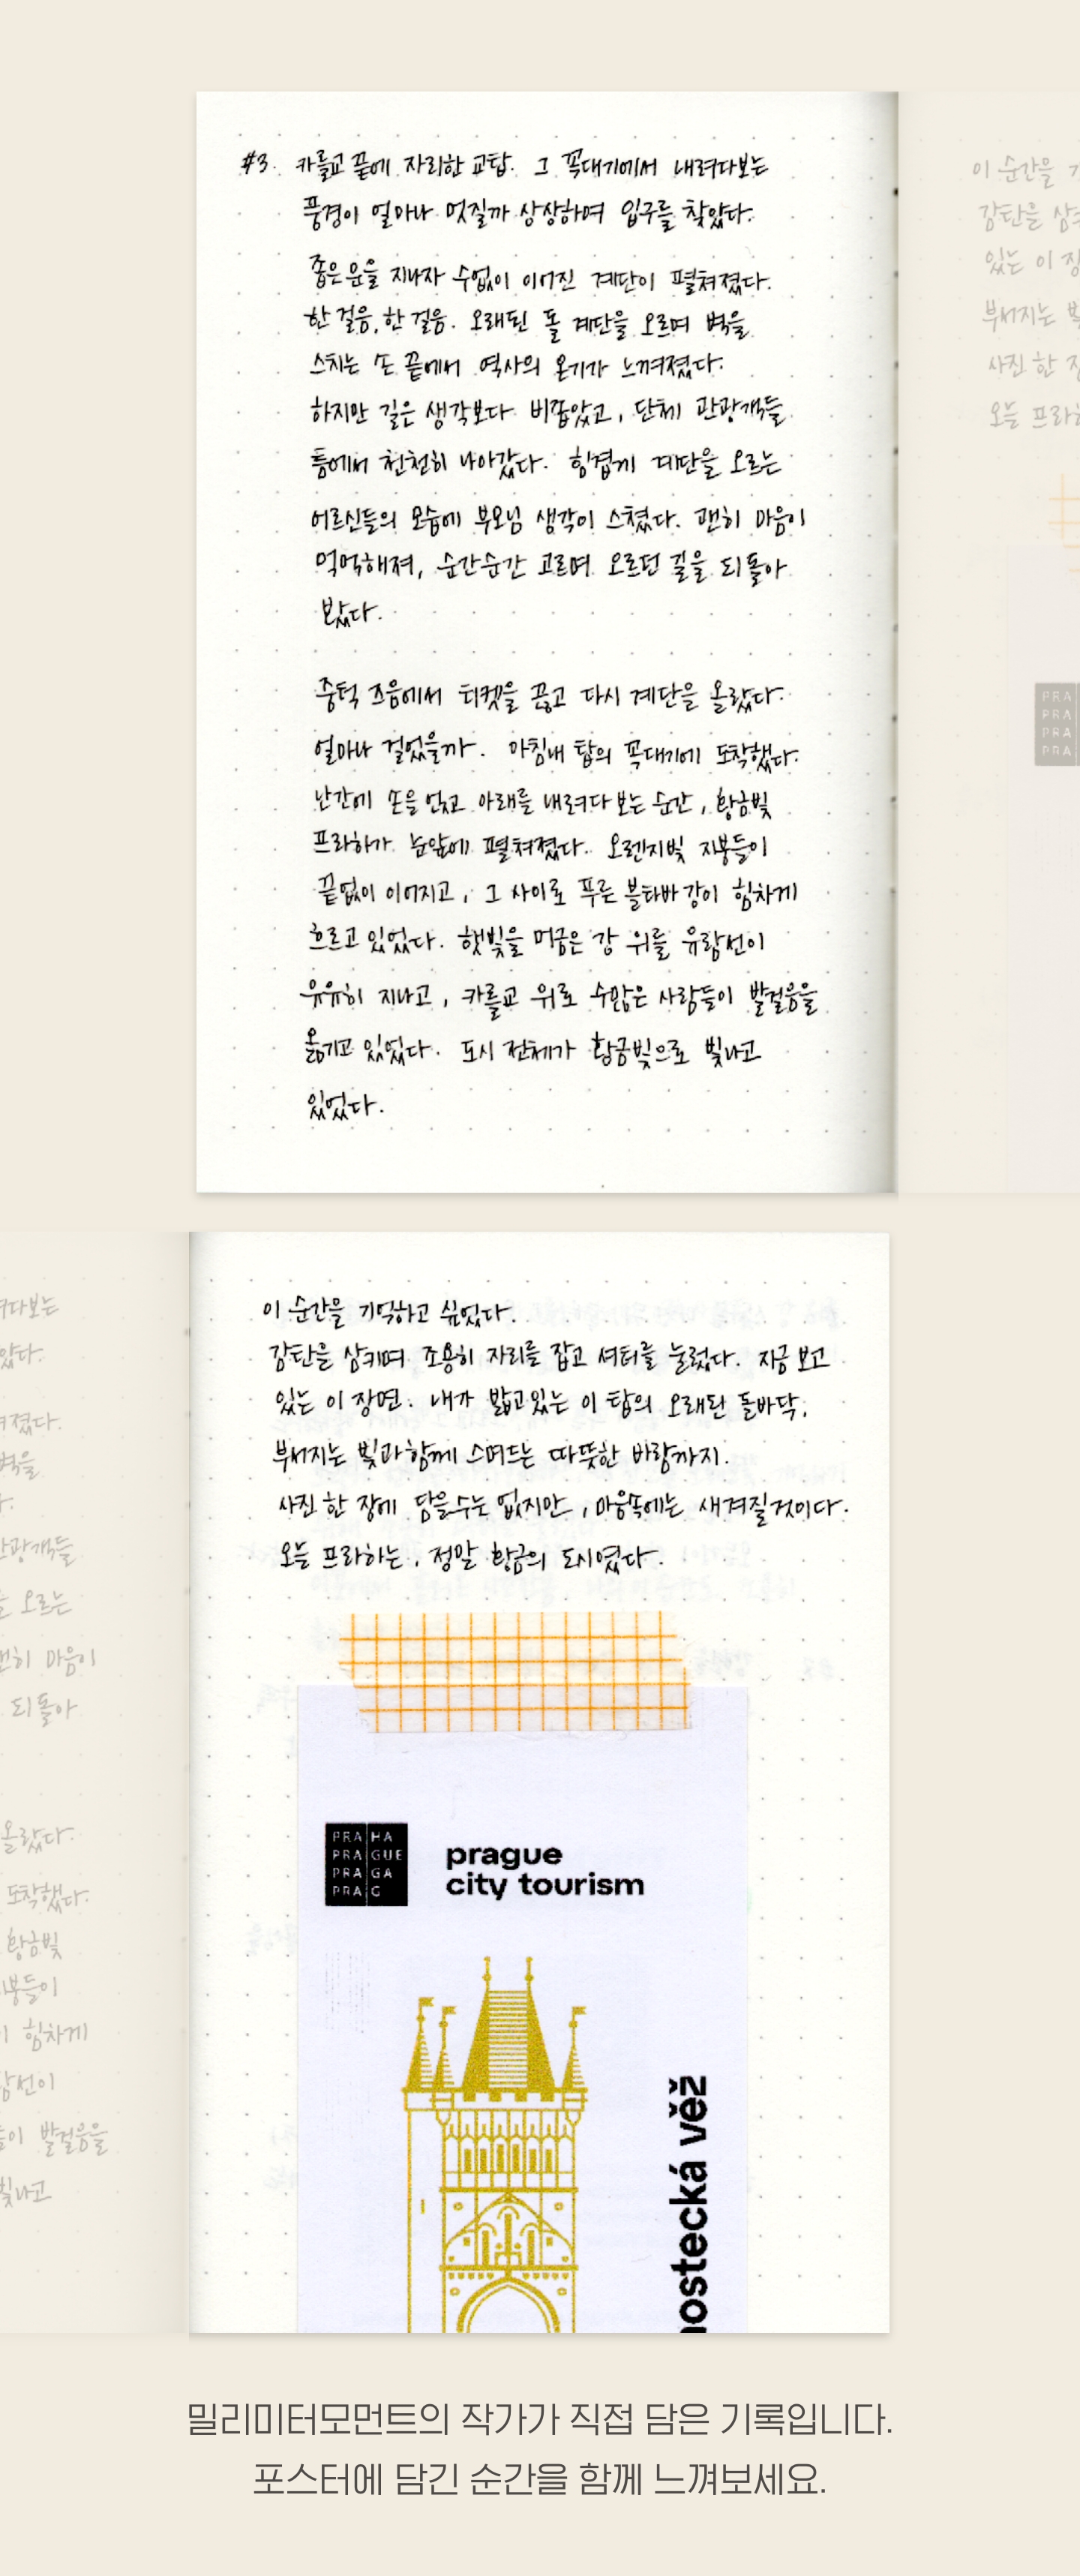 #3. 카를교 끝에 자리한 교탑. 그 꼭대기에서 내려다보는
풍경이 얼마나 멋질까 상상하며 입구를 찾았다.
좁은 문을 지나자 수없이 이어진 계단이 펼쳐졌다.
한 걸음, 한 걸음. 오래된 돌 계단을 오르며 벽을
스치는 손 끝에서 역사의 온기가 느껴졌다.
하지만 길은 생각보다 비좁았고, 단체 관광객들
틈에서 천천히 나아갔다. 힘겹게 계단을 오르는
어르신들의 모습에 부모님 생각이 스쳤다. 괜히 마음이
먹먹해져, 순간순간 고르며 오르던 길을 되돌아
봤다.
중턱 즈음에서 티켓을 끊고 다시 계단을 올랐다.
얼마나 걸었을까. 마침내 탑의 꼭대기에 도착했다.
난간에 손을 얹고 아래를 내려다 보는 순간, 황금빛
프라하가 눈앞에 펼쳐졌다. 오렌지빛 지붕들이
끝없이 이어지고, 그 사이로 푸른 블타바 강이 힘차게
흐르고 있었다. 햇빛을 머금은 강 위를 유람선이
유유히 지나고, 카를교 위로 수많은 사람들이 발걸음을
옮기고 있었다. 도시 전체가 황금빛으로 빛나고
있었다.
이 순간을 기억하고 싶었다.
감탄을 삼키며 조용히 자리를 잡고 셔터를 눌렀다. 지금 보고
있는 이 장면. 내가 밟고있는 이 탑의 오래된 돌바닥,
부서지는 빛과 함께 스며드는 따뜻한 바람까지.
사진 한 장에 담을수는 없지만, 마음속에는 새겨질것이다.
오늘 프라하는, 정말 황금의 도시였다.
PRAHA
PRAGUE
PRAGA
PRAG
prague
city tourism
mostecká věž
밀리미터모먼트의 작가가 직접 담은 기록입니다.
포스터에 담긴 순간을 함께 느껴보세요.